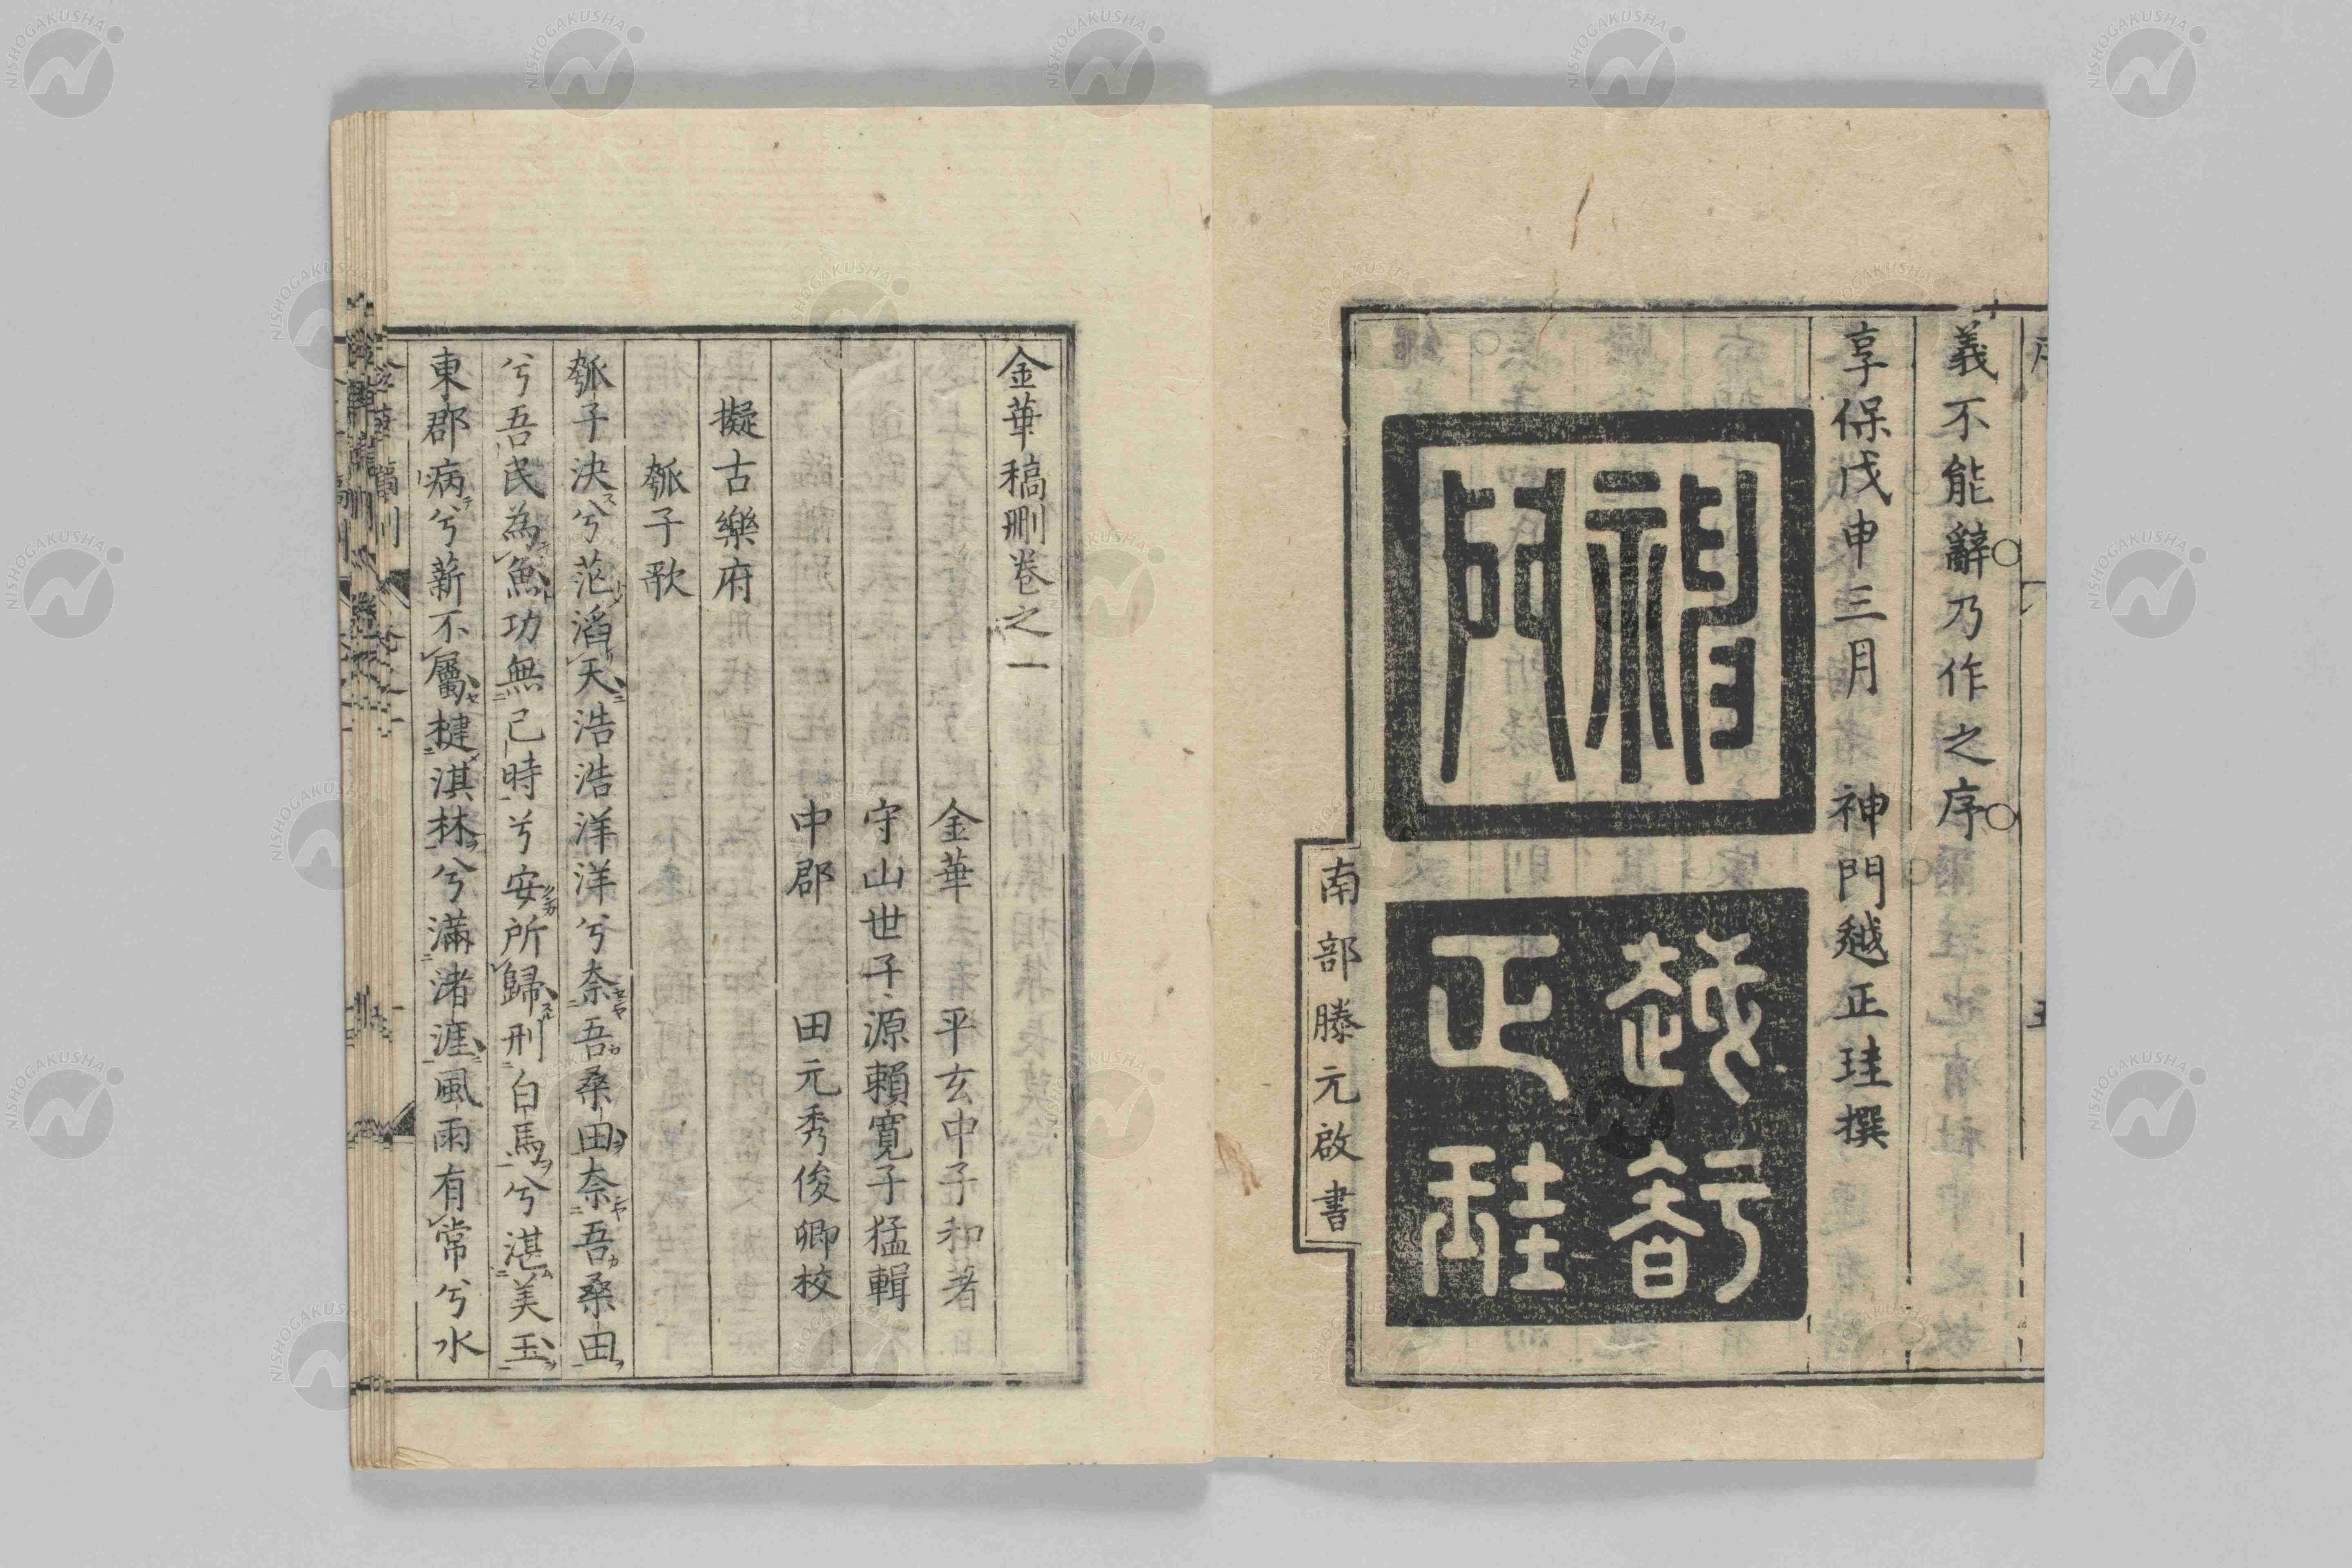 義不能辭乃作之序
享保戊申三月 神門越正珪撰
神門
越智正珪
南部滕元啟書
金華稿刪卷之一
金華 平玄中子和著
守山世子源賴寛子猛輯
中郡 田元秀俊卿校
擬古樂府
瓠子歌
瓠子決兮范滔天浩浩洋洋兮奈吾桑田奈吾桑田
兮吾民為魚功無已時兮安所歸刑白馬兮湛美玉
東郡病兮薪不屬楗淇林兮滿渚涯風雨有常兮水
NISHOGAKUSHA